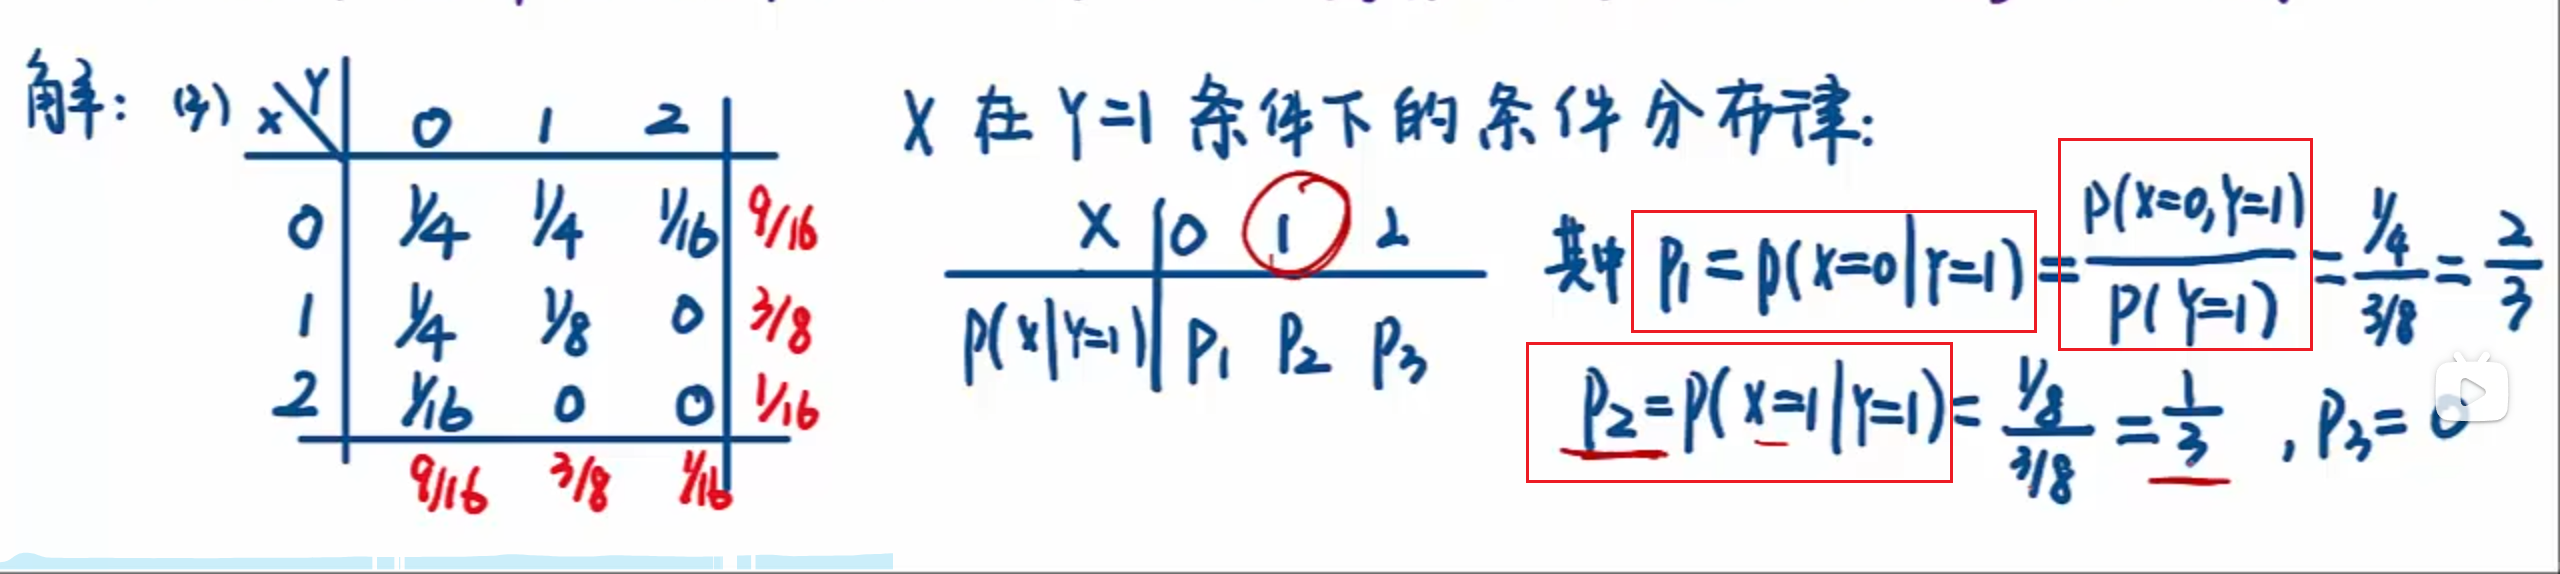 解：(3) X\Y 0 1 2
0 1/4 1/4 1/16 9/16
1 1/4 1/8 0 3/8
2 1/16 0 0 1/16
9/16 3/8 1/16
X 在 Y=1 条件下的条件分布律：
X 0 1 2
P(X|Y=1) P1 P2 P3
其中 P1=P(X=0|Y=1)=P(X=0,Y=1)/P(Y=1)=(1/4)/(3/8)=2/3
P2=P(X=1|Y=1)=(1/8)/(3/8)=1/3，P3=0